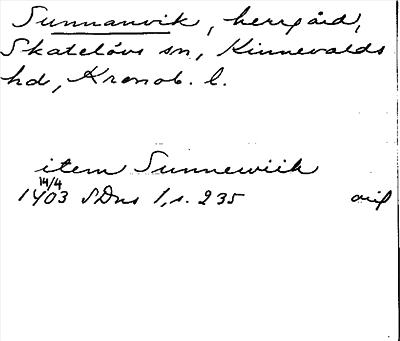 Sunnanvik, herrgård,
Skatelövs sn, Kinnevalds
hd, Kronob. l.
item Sunnewiik
14/4
1403 SDns 1, s. 235 orig